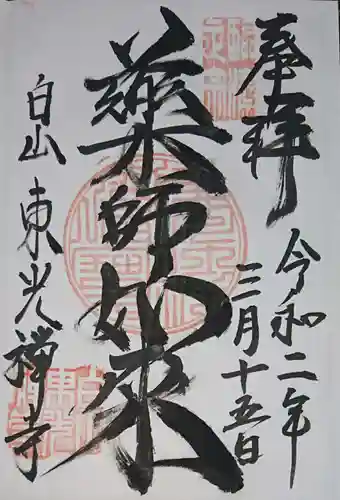 奉拝
令和二年
三月十五日
藥師如来
白山 東光禅寺